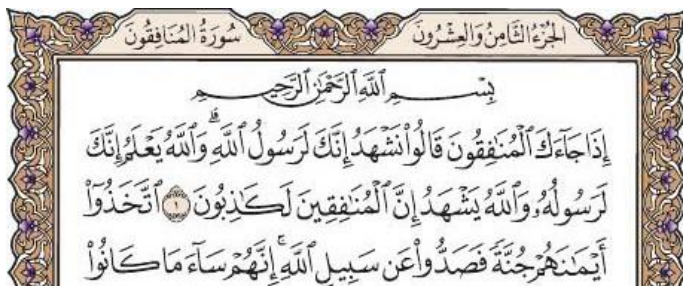 سُورَةُ المُنَافِقُونَ الجُزْءُ الثَّامِنُ وَالعِشْرُونَ
بِسْمِ ٱللَّهِ ٱلرَّحْمَٰنِ ٱلرَّحِيمِ
إِذَا جَآءَكَ ٱلْمُنَٰفِقُونَ قَالُوا۟ نَشْهَدُ إِنَّكَ لَرَسُولُ ٱللَّهِۗ وَٱللَّهُ يَعْلَمُ إِنَّكَ
لَرَسُولُهُۥ وَٱللَّهُ يَشْهَدُ إِنَّ ٱلْمُنَٰفِقِينَ لَكَٰذِبُونَ ١ ٱتَّخَذُوٓا۟
أَيْمَٰنَهُمْ جُنَّةً فَصَدُّوا۟ عَن سَبِيلِ ٱللَّهِۚ إِنَّهُمْ سَآءَ مَا كَانُوا۟